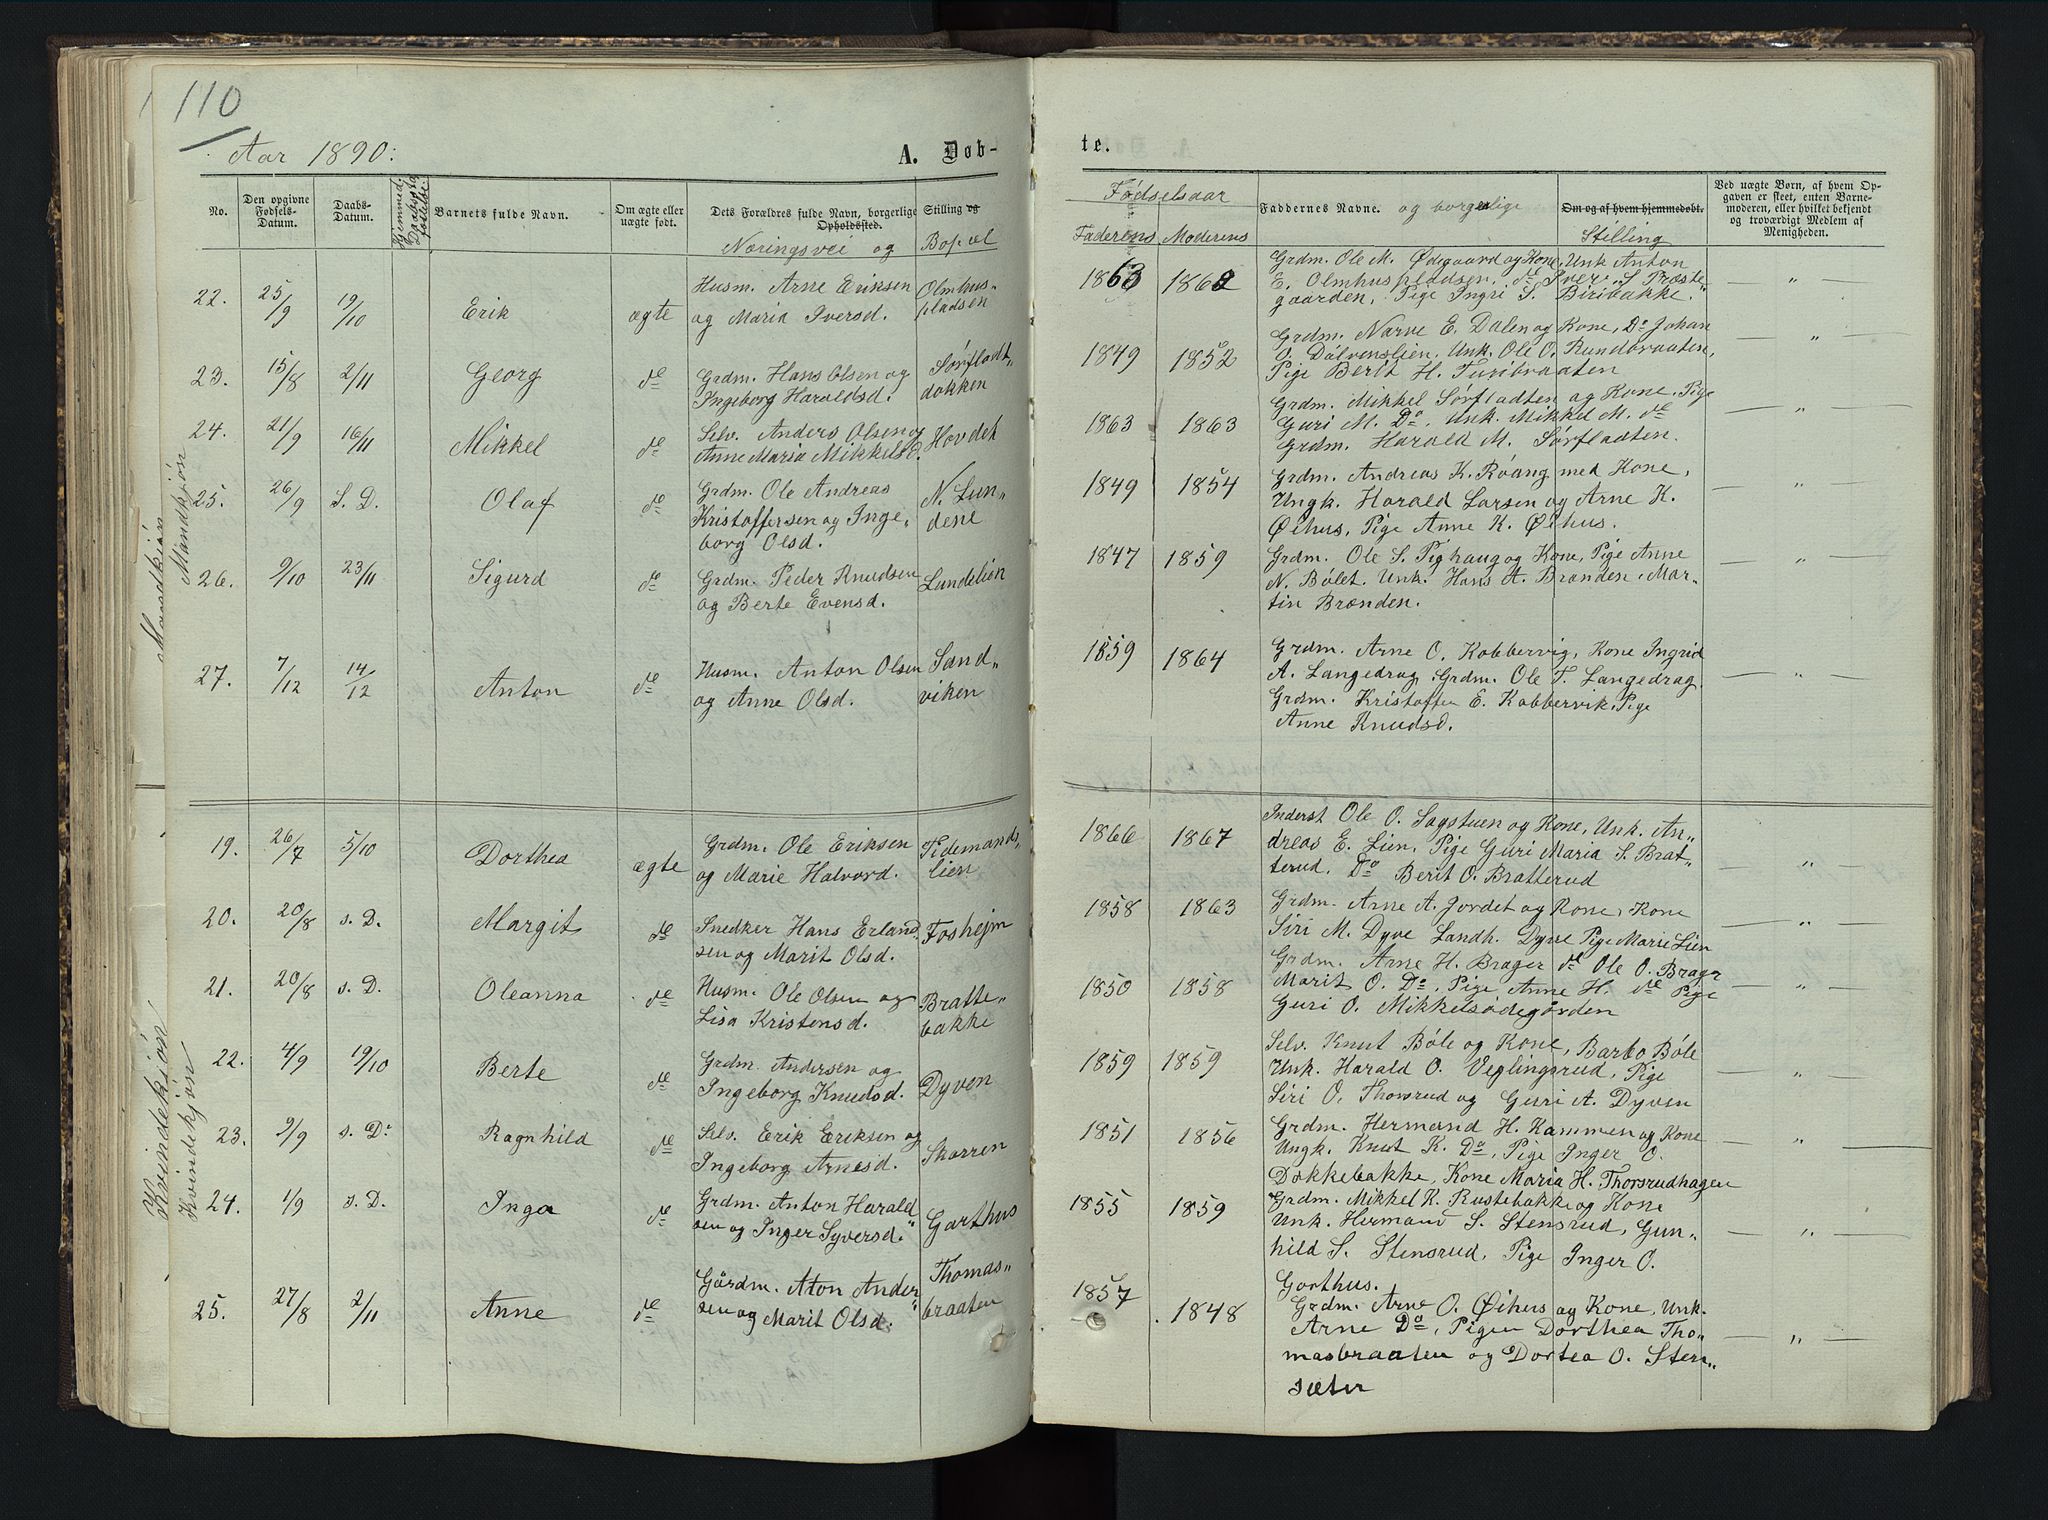 110
Aar 1890:
A. Døb-
No.
Den opgivne Fødsels-Datum.
Daabs-Datum.
Barnets fulde Navn.
Om ægte eller uægte født.
Dets Forældres fulde Navn, borgerlige Stilling og Opholdssted.
Næringsvei og Bopæl
Mandkjøn
22. 25/9 19/10 Erik ægte
Husm. Arne Eriksen
og Maria Iversd.
Olmhus-
pladsen
23. 15/8 2/11 Georg do
Grdm. Hans Olsen og
Ingeborg Haraldsd.
Sørfladt-
dokken
24. 21/9 16/11 Mikkel do
Selv. Anders Olsen og
Anne Maria Mikkelsd.
Hovdet
25. 26/9 S. D. Olaf do
Grdm. Ole Andreas
Kristoffersen og Inge-
borg Olsd.
N. Lun-
dene
26. 9/10 23/11 Sigurd do
Grdm. Peder Knudsen
og Berte Evensd.
Lundelien
27. 7/12 14/12 Anton do
Husm. Anton Olsen
og Anne Olsd.
Sand-
viken
Kvindekjøn
Kvindekjøn
19. 26/7 5/10 Dorthea ægte
Grdm. Ole Eriksen
og Marie Halvord.
Tidemands-
lien
20. 20/8 s. D. Margit do
Snedker Hans Erland-
sen og Marit Olsd.
Foshejm
21. 20/8 s. D. Oleanna do
Husm. Ole Olsen og
Lisa Kristensd.
Bratte-
bakke
22. 4/9 19/10 Berte do
Grdm. Andersen og
Ingeborg Knudsd.
Dyven
23. 9/9 s. D. Ragnhild do
Selv. Erik Eriksen og
Ingeborg Arnesd.
Skarren
24. 1/9 s. D. Inga do
Grdm. Anton Harald
sen og Inger Syversd.
Garthus
25. 27/8 2/11 Anne do
Gårdm. Aton Ander-
sen og Marit Olsd.
Thomas-
braaten
te.
Fødselsaar
Faderens Moderens
Faddernes Navne. og borgerlige
Om og af hvem hjemmedøbt.
Stilling
Ved uægte Børn, af hvem Op-
gaven er skeet, enten Barne-
moderen, eller hvilket bekjendt
og troværdigt Medlem af
Menigheden.
1863 1862
Grdm. Ole M. Ødegaard og Kone, Unk Anton
E. Olmhuspladsen, do Iver S. Præste-
gaarden, Pige Ingri S. Biribakke.
1849 1852
Grdm. Narve E. Dalen og Kone, Do Johan
O. Dølvenslien, Unk. Ole O. Rundbraaten,
Pige Berit H. Turibraaten
1863 1863
Grdm. Mikkel Sørfladten og Kone, Pige
Guri M. Do, Unk. Mikkel M. do
Grdm. Harald M. Sørfladten.
1849 1854
Grdm. Andreas K. Røang med Kone,
Ungk. Harald Larsen og Arne K.
Øihus, Pige Anne K. Øihus.
1847 1859
Grdm. Ole S. Pighaug og Kone, Pige Anne
N. Bølet. Unk. Hans A. Brænden, Mar-
tin Brænden.
1859 1864
Grdm. Arne O. Kobbervig, Kone Ingrid
A. Langedrag, Grdm. Ole T. Langedrag
Grdm. Kristoffer E. Kobbervik, Pige
Anne Knudsd.
1866 1867
Inderst Ole O. Sagstuen og Kone, Unk. An-
dreas E. Lien, Pige Guri Maria S. Brat-
terud, Do Berit O. Bratterud
1858 1863
Grdm. Arne A. Jordet og Kone, Kone
Siri M. Dyve Landh. Dyve Pige Marie Lien
1850 1858
Grdm. Arne H. Brager do Ole O. Brager
Marit O. Do, Pige Anne H. do Pige
Guri O. Mikkelsødegården
1859 1859
Selv. Knut Bøle og Kone, Barbo Bøle
Unk. Harald O. Veglingsrud, Pige
Siri O. Thorsrud og Guri A. Dyven
1851 1856
Grdm. Hermand H. Kammen og Kone
Ungk. Knut K. Do, Pige Inger O.
Dokkebakke, Kone Maria H. Thorsrudhagen
1855 1859
Grdm. Mikkel K. Rustebakke og Kone
Unk. Hermand S. Stensrud, Gun-
hild S. Stensrud, Pige Inger O.
Gorthus.
1857 1848
Grdm. Arne O. Øihus og Kone, Unk.
Arne Do, Pigen Dorthea Tho-
masbraaten og Dortea O. Sten-
sæter